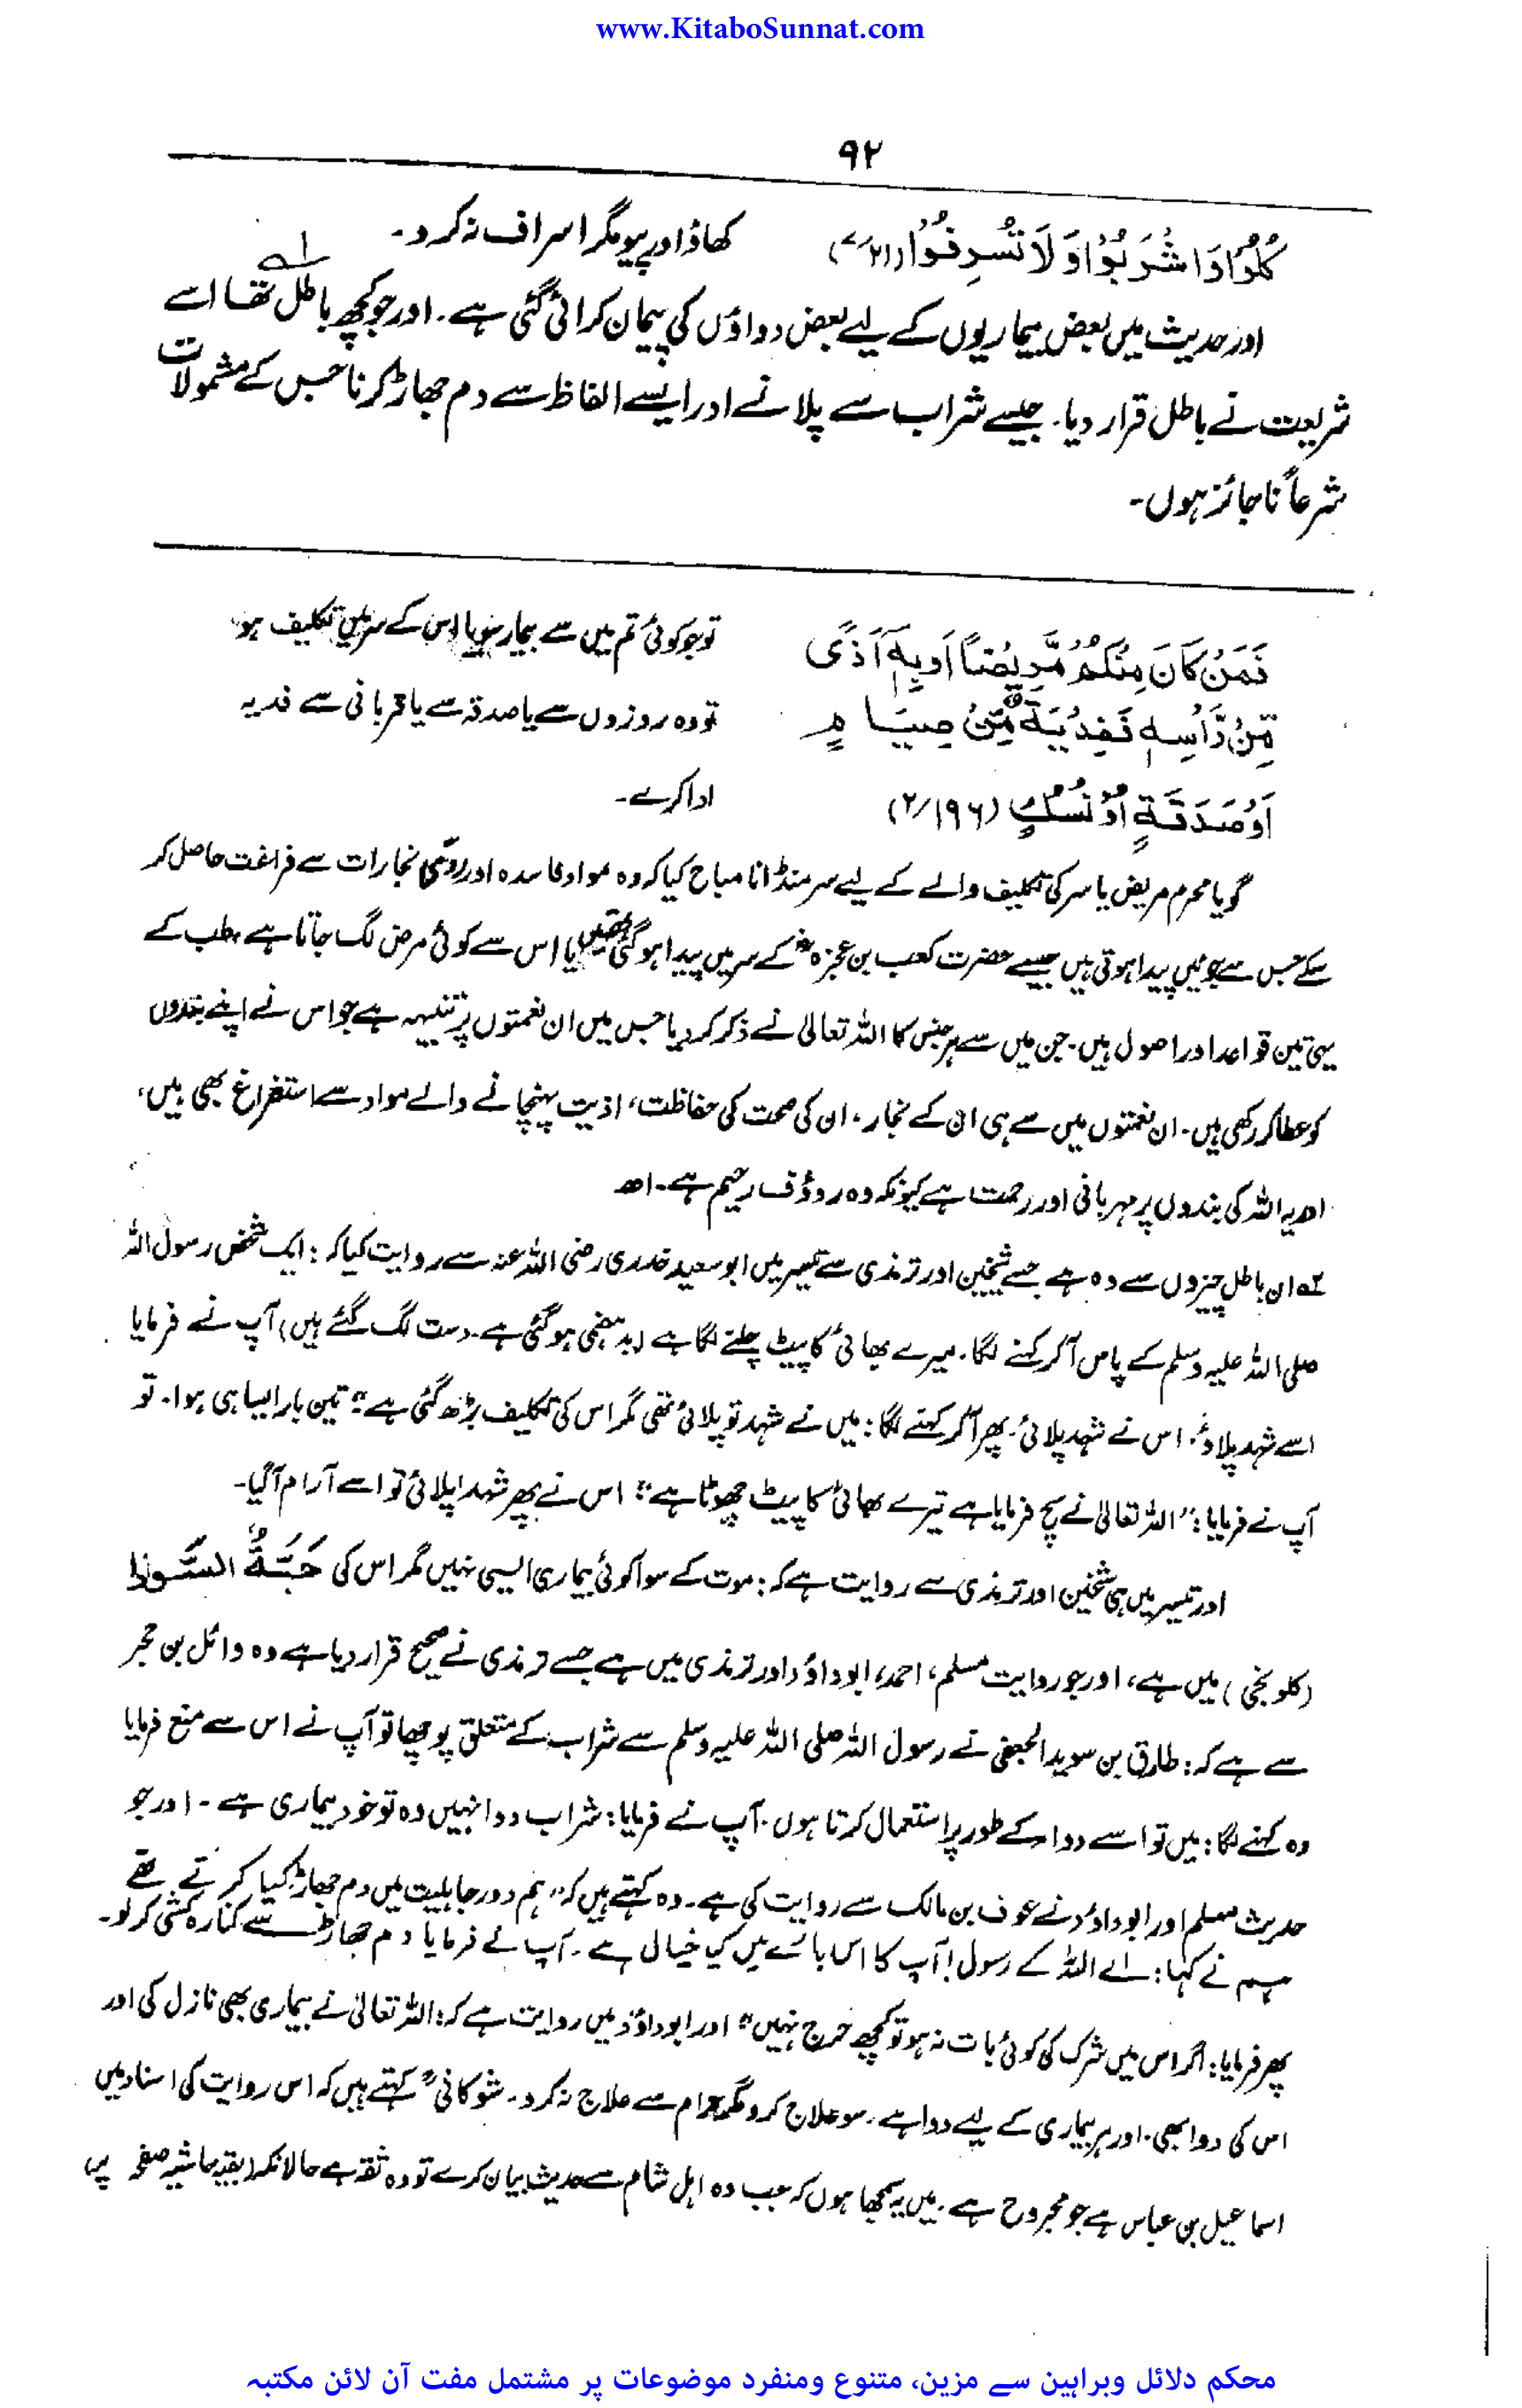 www.KitaboSunnat.com
۹۲
كُلُوْا وَاشْرَبُوْا وَلَا تُسْرِفُوْا (۷/۳۱) کھاؤ اور پیو مگر اسراف نہ کرو۔
اور حدیث میں بعض بیماریوں کے لیے بعض دواؤں کی پہچان کرائی گئی ہے۔ اور جو کچھ باطل تھا اسے
شریعت نے باطل قرار دیا۔ جیسے شراب سے پلانے اور ایسے الفاظ سے دم جھاڑ کرنا جس کے مشمولات
شرعاً ناجائز ہوں۔
فَمَنْ كَانَ مِنْكُمْ مَّرِيْضًا اَوْ بِهٖٓ اَذًى تو جو کوئی تم میں سے بیمار ہو یا اس کے سر میں تکلیف ہو
مِّنْ رَّاْسِهٖ فَفِدْيَةٌ مِّنْ صِيَامٍ تو وہ روزوں سے یا صدقہ سے یا قربانی سے فدیہ
اَوْ صَدَقَةٍ اَوْ نُسُكٍ (۲/۱۹۶) ادا کرے۔
گویا محرم مریض یا سر کی تکلیف والے کے لیے سر منڈانا مباح کیا کہ وہ مواد فاسدہ اور ردی بخارات سے فراغت حاصل کر
سکے جس سے جوئیں پیدا ہوتی ہیں جیسے حضرت کعب بن عجزہؓ کے سر میں پیدا ہو گئی تھیں یا اس سے کوئی مرض لگ جاتا ہے۔ طب کے
یہی تین قواعد اور اصول ہیں۔ جن میں سے ہر جنس کا اللہ تعالیٰ نے ذکر کر دیا جس میں ان نعمتوں پر تنبیہہ ہے جو اس نے اپنے بندوں
کو عطا کر رکھی ہیں۔ ان نعمتوں میں سے ہی ان کے بخار، ان کی صحت کی حفاظت، اذیت پہنچانے والے مواد سے استفراغ بھی ہیں،
اور یہ اللہ کی بندوں پر مہربانی اور رحمت ہے کیونکہ وہ رووف رحیم ہے۔ اھ
لہ ان باطل چیزوں سے وہ ہے جسے شیخین اور ترمذی سے تیسیر میں ابو سعید خدری رضی اللہ عنہ سے روایت کیا کہ: ایک شخص رسول اللہ
صلی اللہ علیہ وسلم کے پاس آ کر کہنے لگا۔ میرے بھائی کا پیٹ چلنے لگا ہے (بدہضمی ہو گئی ہے۔ دست لگ گئے ہیں) آپ نے فرمایا
اسے شہد پلاؤ۔ اس نے شہد پلائی۔ پھر آ کر کہنے لگا: میں نے شہد تو پلائی تھی مگر اس کی تکلیف بڑھ گئی ہے" تین بار ایسا ہی ہوا۔ تو
آپ نے فرمایا: "اللہ تعالیٰ نے سچ فرمایا ہے تیرے بھائی کا پیٹ جھوٹا ہے" اس نے پھر شہد پلائی تو اسے آرام آ گیا۔
اور تیسیر میں ہی شیخین اور ترمذی سے روایت ہے کہ: موت کے سوا کوئی بیماری ایسی نہیں مگر اس کی حَبَّةُ السَّوْدَا
(کلونجی) میں ہے، اور جو روایت مسلم، احمد، ابوداؤد اور ترمذی میں ہے جسے ترمذی نے صحیح قرار دیا ہے وہ وائل بن حجر
سے ہے کہ: طارق بن سوید الجعفی نے رسول اللہ صلی اللہ علیہ وسلم سے شراب کے متعلق پوچھا تو آپ نے اس سے منع فرمایا
وہ کہنے لگا: میں تو اسے دوا کے طور پر استعمال کرتا ہوں۔ آپ نے فرمایا: شراب دوا نہیں وہ تو خود بیماری ہے۔ اور جو
حدیث مسلم اور ابوداؤد نے عوف بن مالک سے روایت کی ہے۔ وہ کہتے ہیں کہ "ہم دور جاہلیت میں دم جھاڑ کیا کرتے تھے
ہم نے کہا: اے اللہ کے رسول! آپ کا اس بارے میں کیا خیال ہے۔ آپ نے فرمایا دم جھاڑ سے کنارہ کشی کر لو۔
پھر فرمایا: اگر اس میں شرک کی کوئی بات نہ ہو تو کچھ حرج نہیں" اور ابوداؤد میں روایت ہے کہ: اللہ تعالیٰ نے بیماری بھی نازل کی اور
اس کی دوا بھی۔ اور ہر بیماری کے لیے دوا ہے۔ سو علاج کرو مگر حرام سے علاج نہ کرو۔ شوکانیؒ کہتے ہیں کہ اس روایت کی اسناد میں
اسماعیل بن عباس ہے جو مجروح ہے۔ میں یہ سمجھا ہوں کہ جب وہ اہل شام سے حدیث بیان کرے تو وہ ثقہ ہے حالانکہ (بقیہ حاشیہ صفحہ پر)
محکم دلائل وبراہین سے مزین، متنوع ومنفرد موضوعات پر مشتمل مفت آن لائن مکتبہ